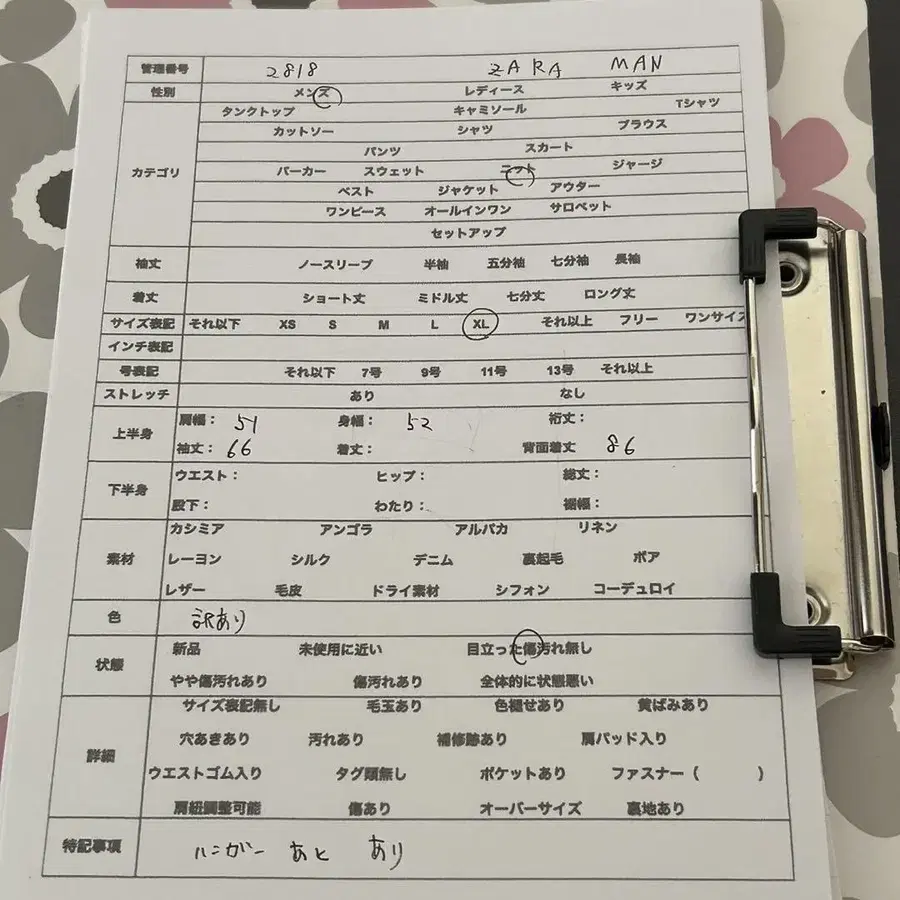 管理番号 2818 ZARA MAN
性別 メンズ レディース キッズ
タンクトップ キャミソール Tシャツ
カットソー シャツ ブラウス
パンツ スカート
カテゴリ パーカー スウェット ニット ジャージ
ベスト ジャケット アウター
ワンピース オールインワン サロペット
セットアップ
袖丈 ノースリーブ 半袖 五分袖 七分袖 長袖
着丈 ショート丈 ミドル丈 七分丈 ロング丈
サイズ表記 それ以下 XS S M L XL それ以上 フリー ワンサイズ
インチ表記
号表記 それ以下 7号 9号 11号 13号 それ以上
ストレッチ あり なし
上半身 肩幅: 51 身幅: 52 裄丈:
袖丈: 66 着丈: 背面着丈 86
下半身 ウエスト: ヒップ: 総丈:
股下: わたり: 裾幅:
カシミア アンゴラ アルパカ リネン
素材 レーヨン シルク デニム 裏起毛 ボア
レザー 毛皮 ドライ素材 シフォン コーデュロイ
色 訳あり
状態 新品 未使用に近い 目立った傷汚れ無し
やや傷汚れあり 傷汚れあり 全体的に状態悪い
サイズ表記無し 毛玉あり 色褪せあり 黄ばみあり
詳細 穴あきあり 汚れあり 補修跡あり 肩パッド入り
ウエストゴム入り タグ類無し ポケットあり ファスナー( )
肩紐調整可能 傷あり オーバーサイズ 裏地あり
特記事項 ハンガー あと あり